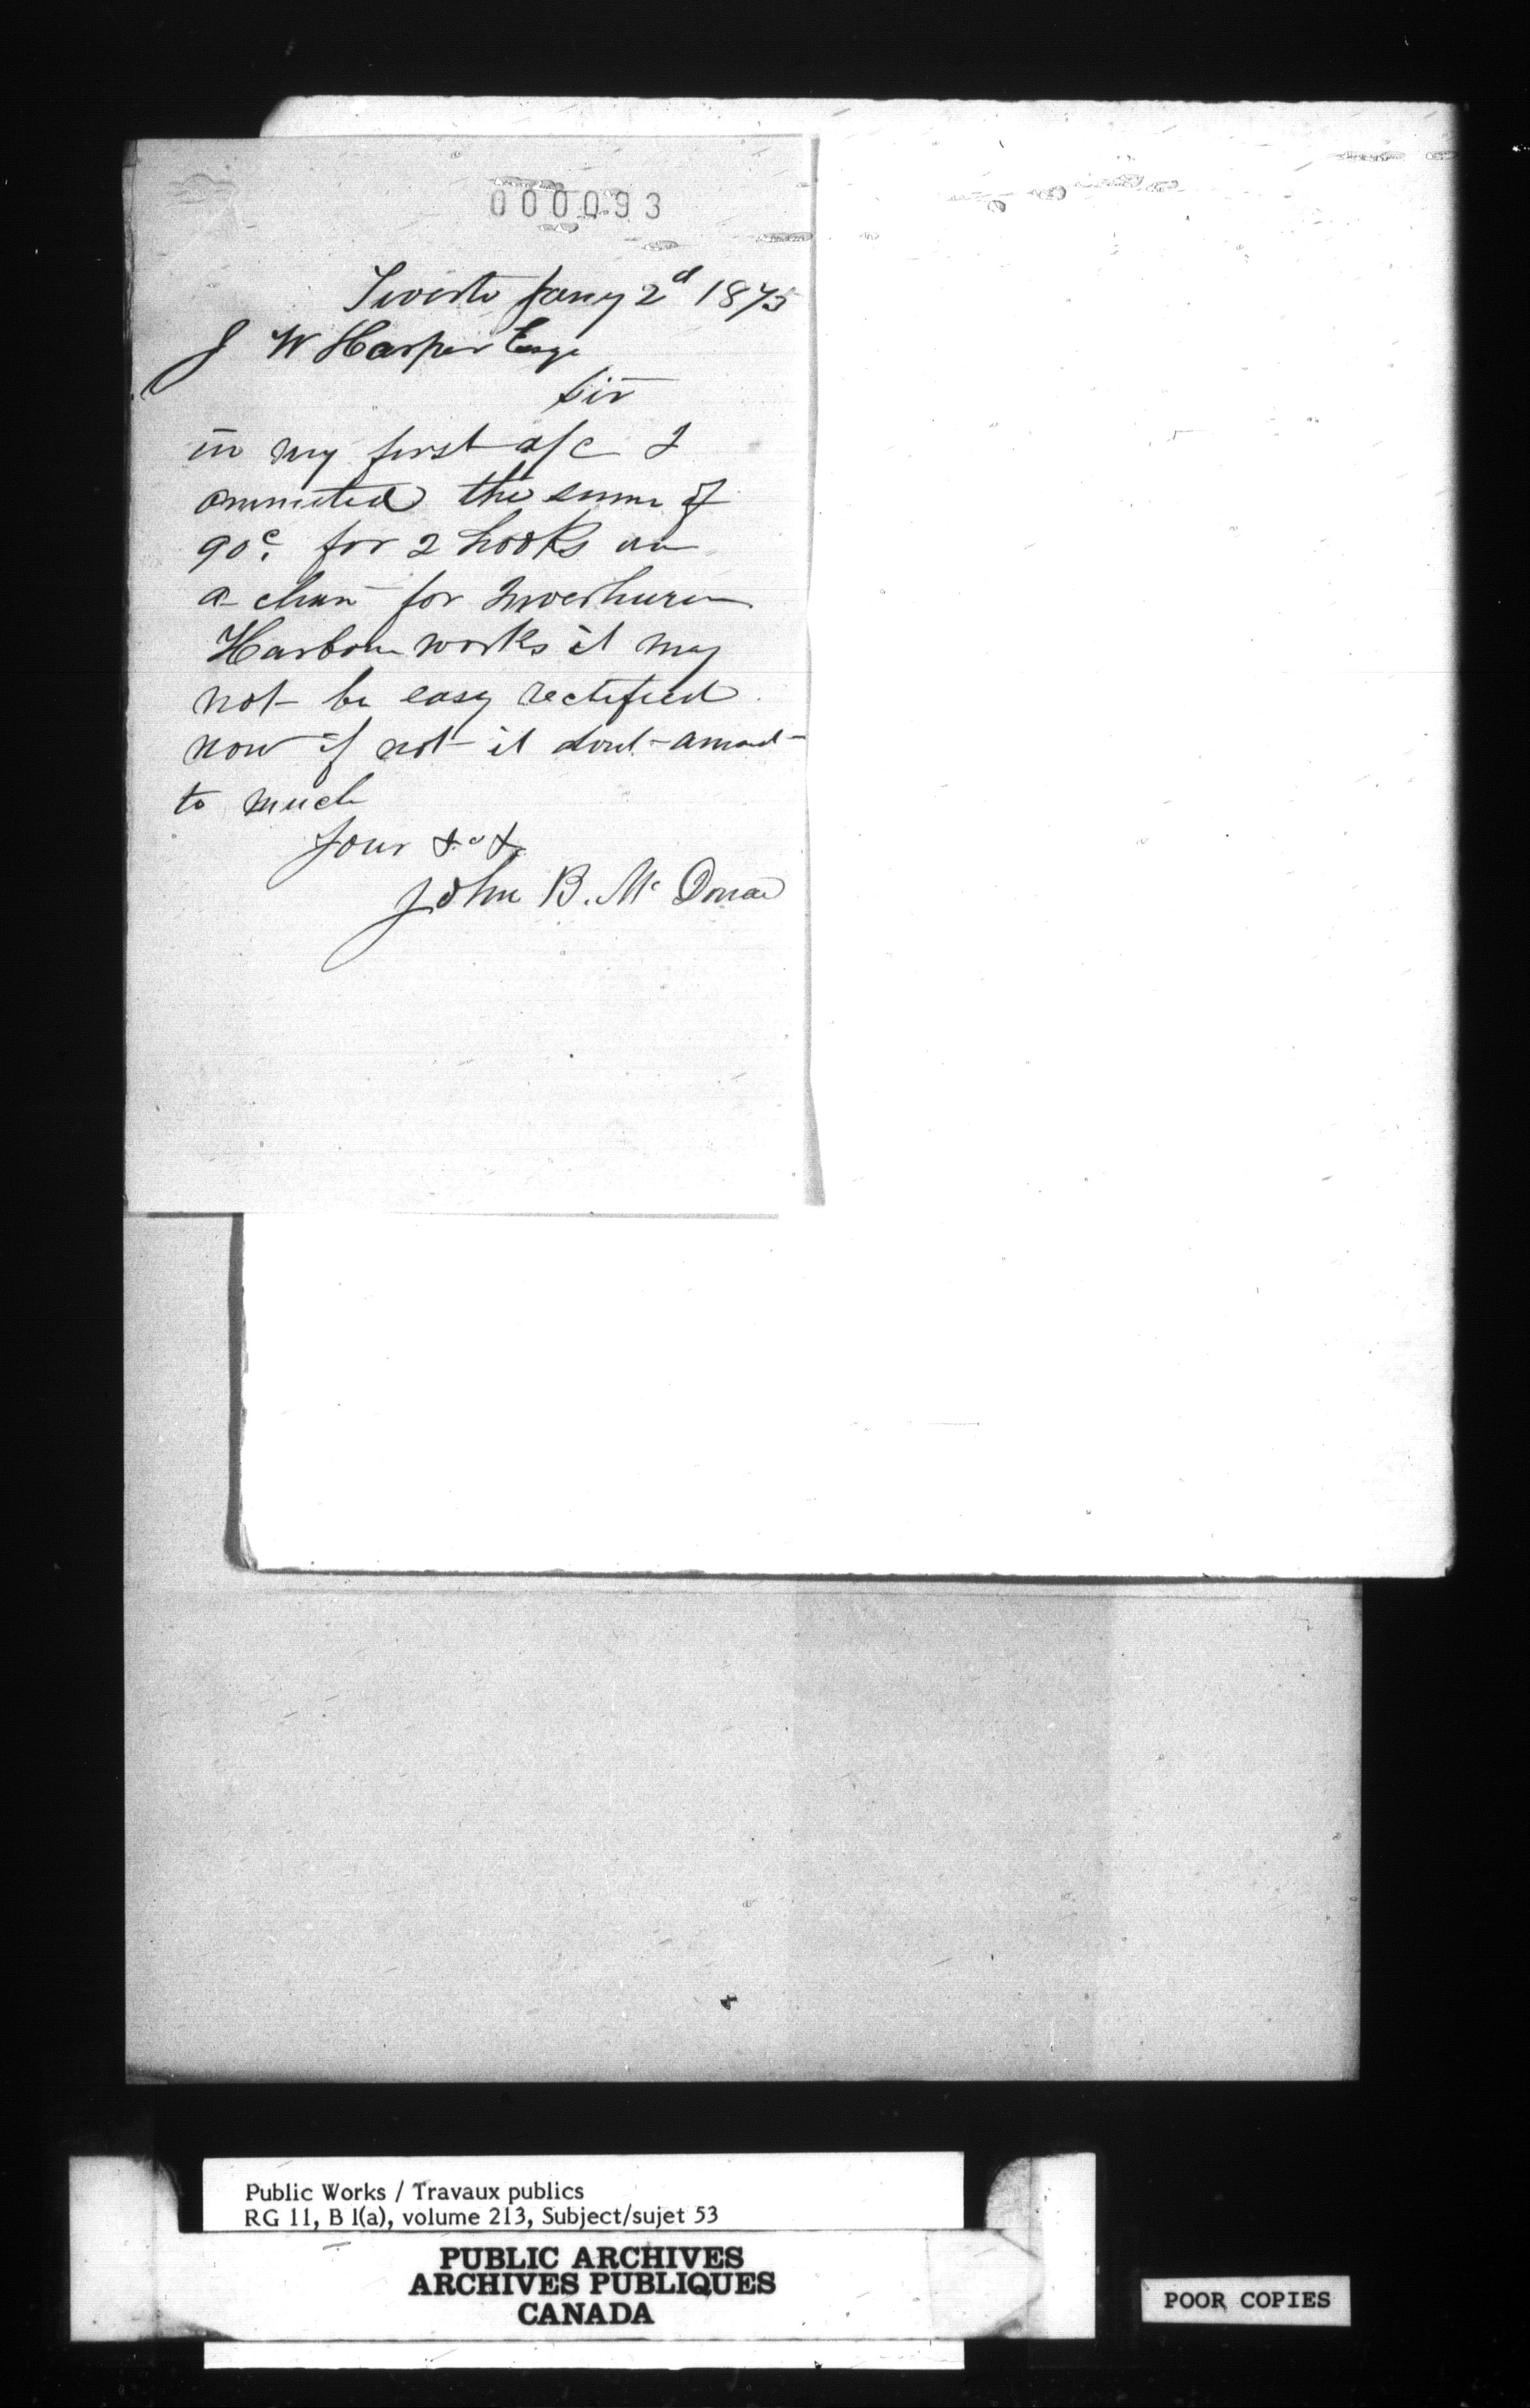 000093
Tiverto Jany 2d 1875
J W Harper Esqr
Sir
in my first a/c I
ommited the sum of
90c. for 2 hooks on
a chain for Inverhuron
Harbour works it may
not be easy rectified
now if not it dont amount
to much
Your &c &c
John B. Mc
Public Works / Travaux publics
RG 11, B 1(a), volume 213, Subject/sujet 53
PUBLIC ARCHIVES
ARCHIVES PUBLIQUES
CANADA
POOR COPIES